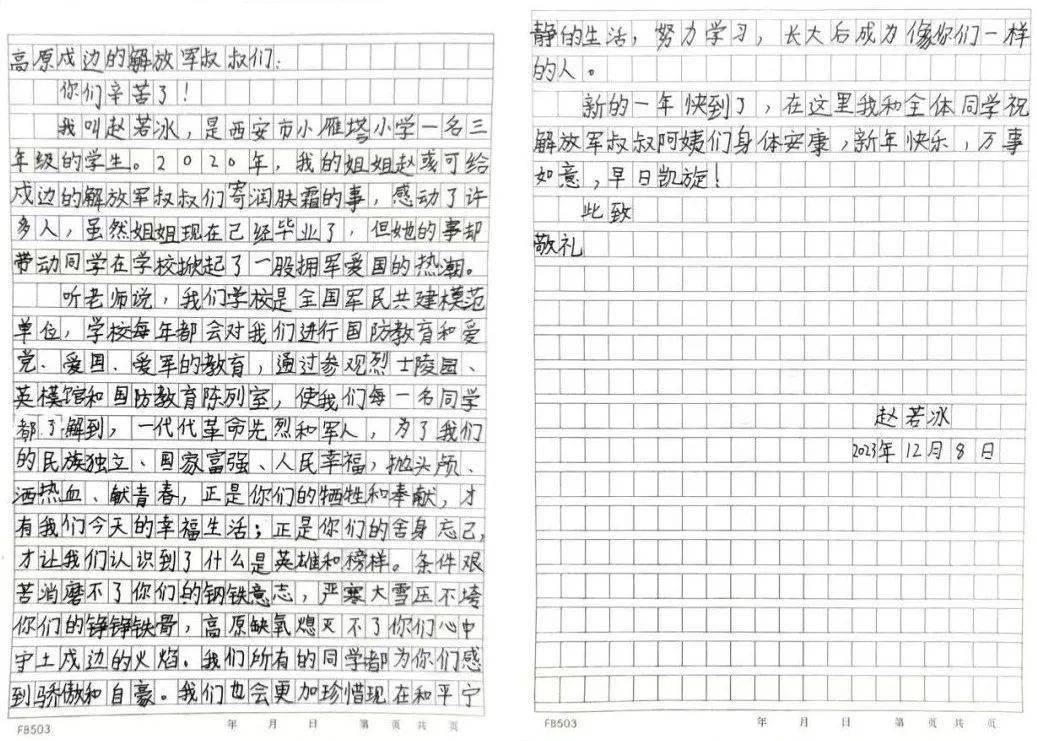 高原戍边的解放军叔叔们：
你们辛苦了！
我叫赵若冰，是西安市小雁塔小学一名三
年级的学生。2020年，我的姐姐赵彧可给
戍边的解放军叔叔们寄润肤霜的事，感动了许
多人，虽然姐姐现在已经毕业了，但她的事却
带动同学在学校掀起了一股拥军爱国的热潮。
听老师说，我们学校是全国军民共建模范
单位，学校每年都会对我们进行国防教育和爱
党、爱国、爱军的教育，通过参观烈士陵园、
英模馆和国防教育陈列室，使我们每一名同学
都了解到，一代代革命先烈和军人，为了我们
的民族独立、国家富强、人民幸福，抛头颅、
洒热血、献青春，正是你们的牺牲和奉献，才
有我们今天的幸福生活；正是你们的舍身忘己，
才让我们认识到了什么是英雄和榜样。条件艰
苦消磨不了你们的钢铁意志，严寒大雪压不垮
你们的铮铮铁骨，高原缺氧熄灭不了你们心中
守土戍边的火焰。我们所有的同学都为你们感
到骄傲和自豪。我们也会更加珍惜现在和平宁
FB503 年 月 日 第 页 共 页
静的生活，努力学习，长大后成为像你们一样
的人。
新的一年快到了，在这里我和全体同学祝
解放军叔叔阿姨们身体安康，新年快乐，万事
如意，早日凯旋！
此致
敬礼
赵若冰
2023年12月8日
FB503 年 月 日 第 页 共 页